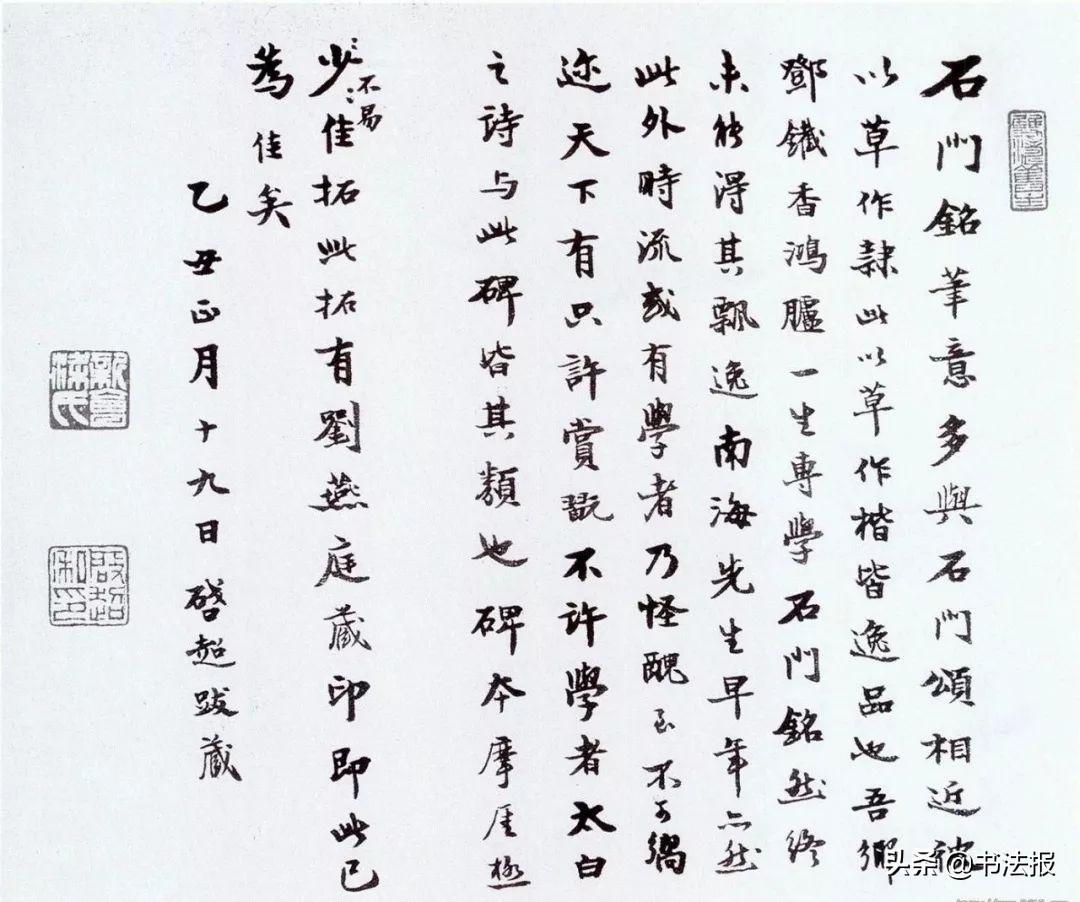 石門銘筆意多與石門頌相近彼
以草作隸此以草作楷皆逸品也吾鄉
鄧鐵香鴻臚一生專學石門銘然終
未能得其飄逸南海先生早年亦然
此外時流或有學者乃怪醜至不可嚮
迩天下有只許賞翫不許學者太白
之詩与此碑皆其類也碑本摩厓極
少佳拓此拓有劉燕庭藏印即此已
不易
為佳矣
乙丑正月十九日啓超跋藏
新會梁氏
啟超私印
头条 @书法报